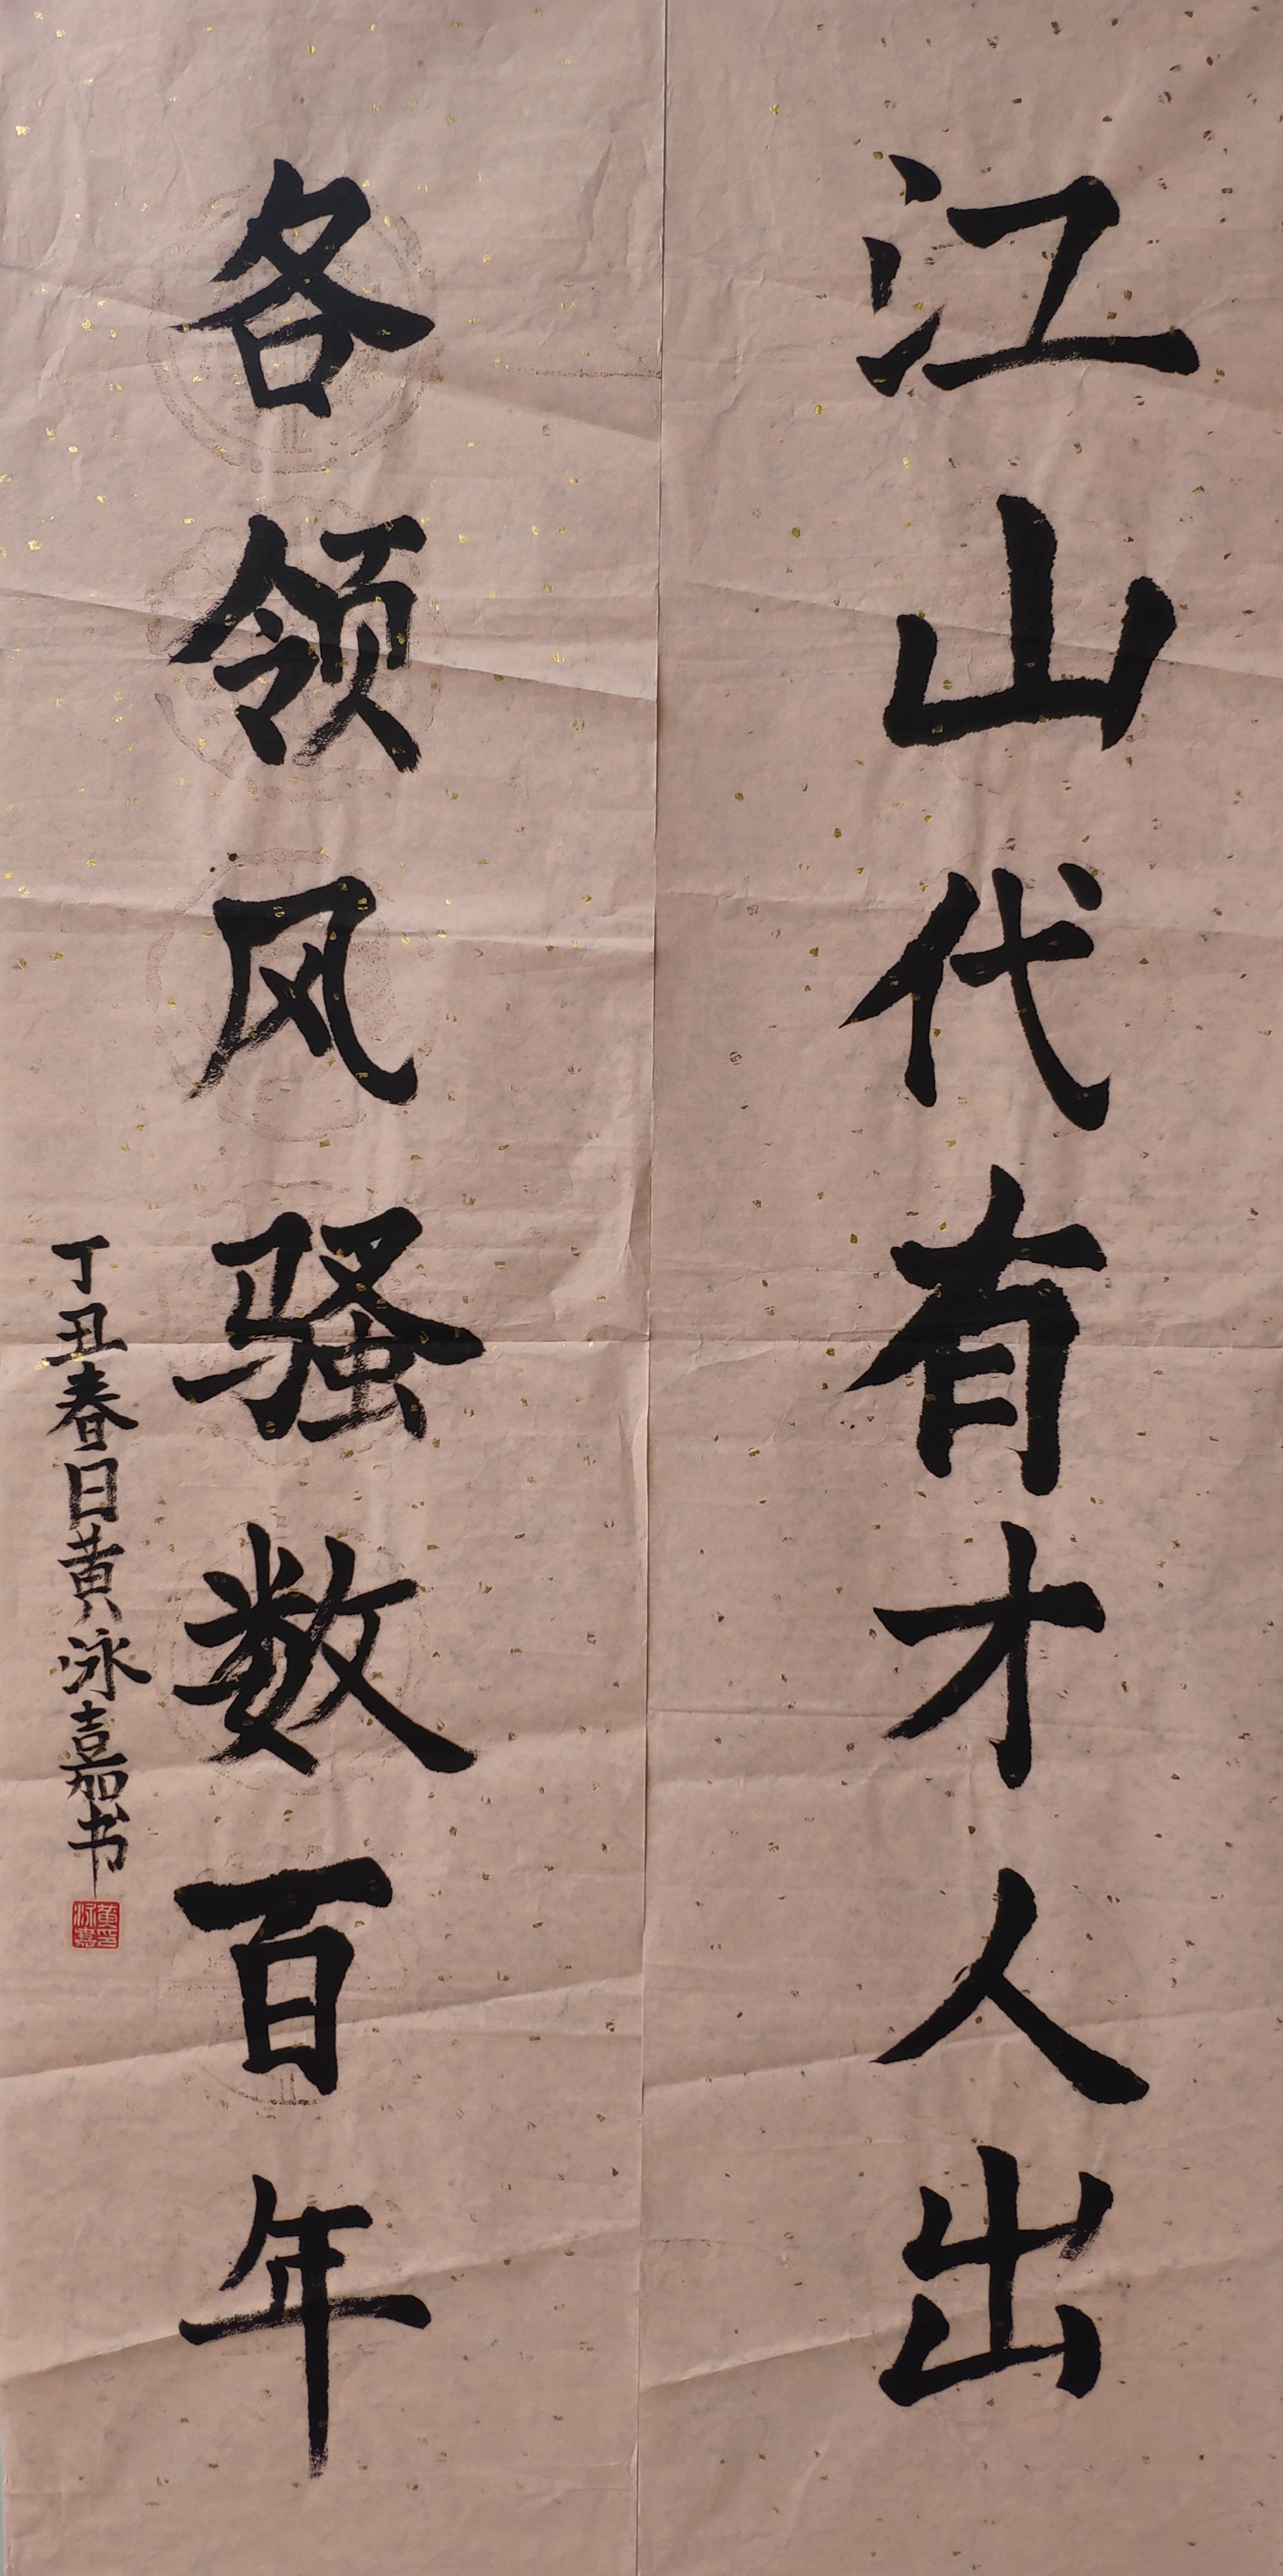 江山代有才人出
各领风骚数百年
丁丑春日黄泳嘉书
黄印
泳嘉